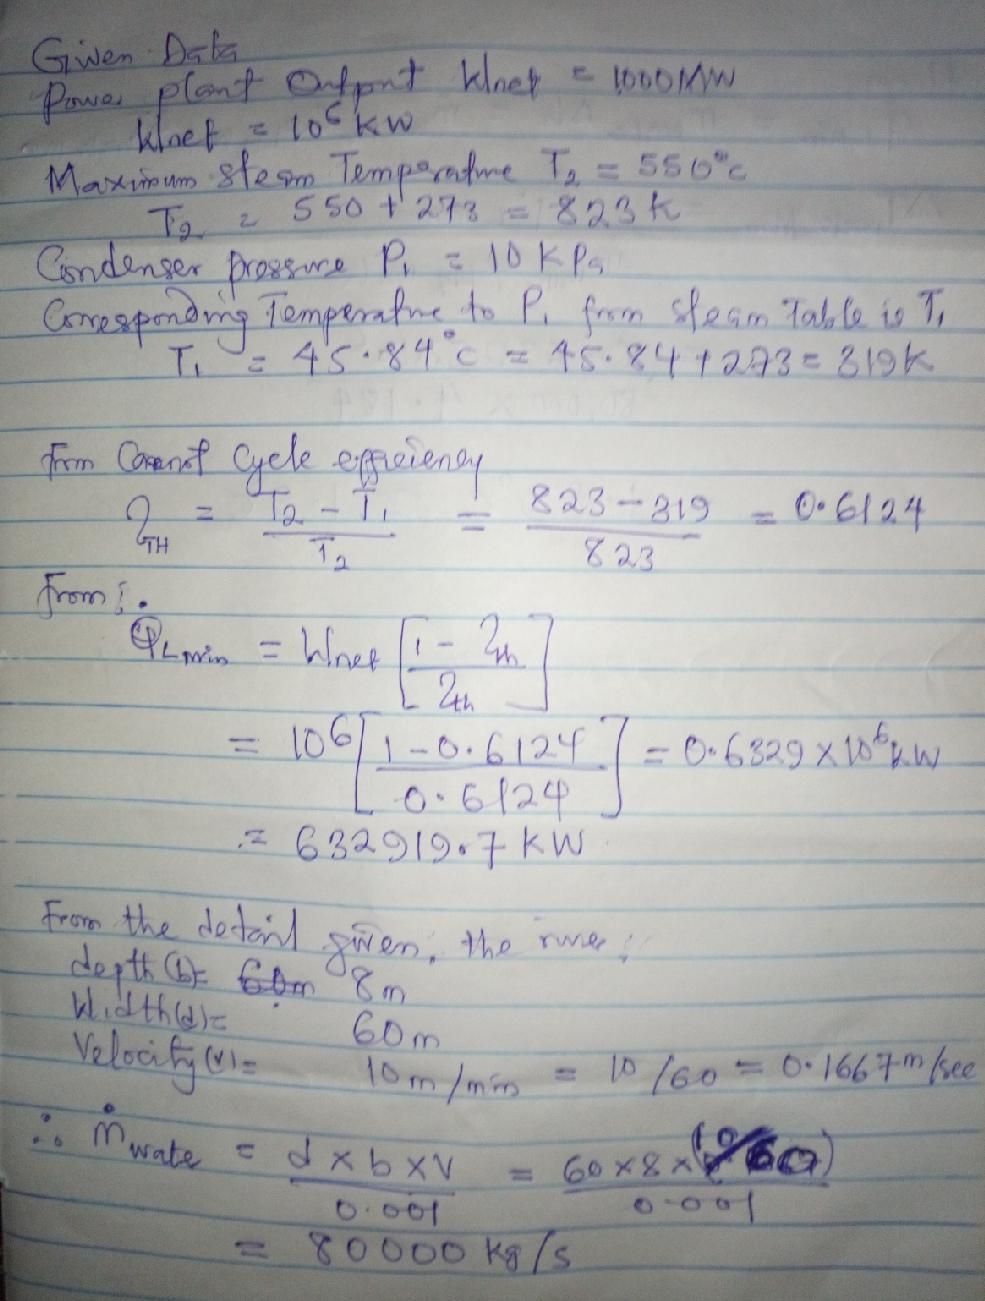 Given Data
Power plant Output Wnet = 1000MW
Wnet = 10⁶ KW
Maximum steam Temperature T₂ = 550°c
T₂ = 550 + 273 = 823K
Condenser pressure P₁ = 10 KPa
Corresponding Temperature to P₁ from steam Table is T₁
T₁ = 45.84°c = 45.84 + 273 = 319K
from Carnot Cycle efficiency
η_TH = (T₂ - T₁)/T₂ = (823 - 319)/823 = 0.6124
from;
Q̇_L min = Wnet [(1 - η_th)/η_th]
= 10⁶ [(1 - 0.6124)/0.6124] = 0.6329 × 10⁶ KW
= 632919.7 KW
From the detail given, the river;
depth (b) = 8m
Width (d) = 60m
Velocity (v) = 10m/min = 10/60 = 0.1667m/sec
∴ ṁ wate = (d × b × V)/0.001 = (60 × 8 × (10/60))/0.001
= 80000 kg/s